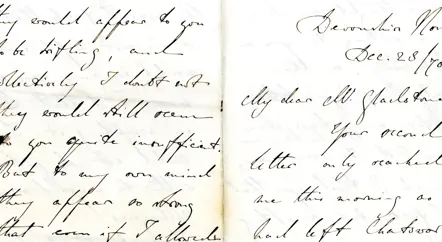 they would appear to you
to be trifling, and
collectively I doubt not
they would still seem
to you quite insufficient.
But to my own mind
they appear so strong
that even if I allowed
Devonshire Hou
Dec. 28/70
My dear Mr. Gladstone
Your second
letter only reached
me this morning as
had left Chatswor